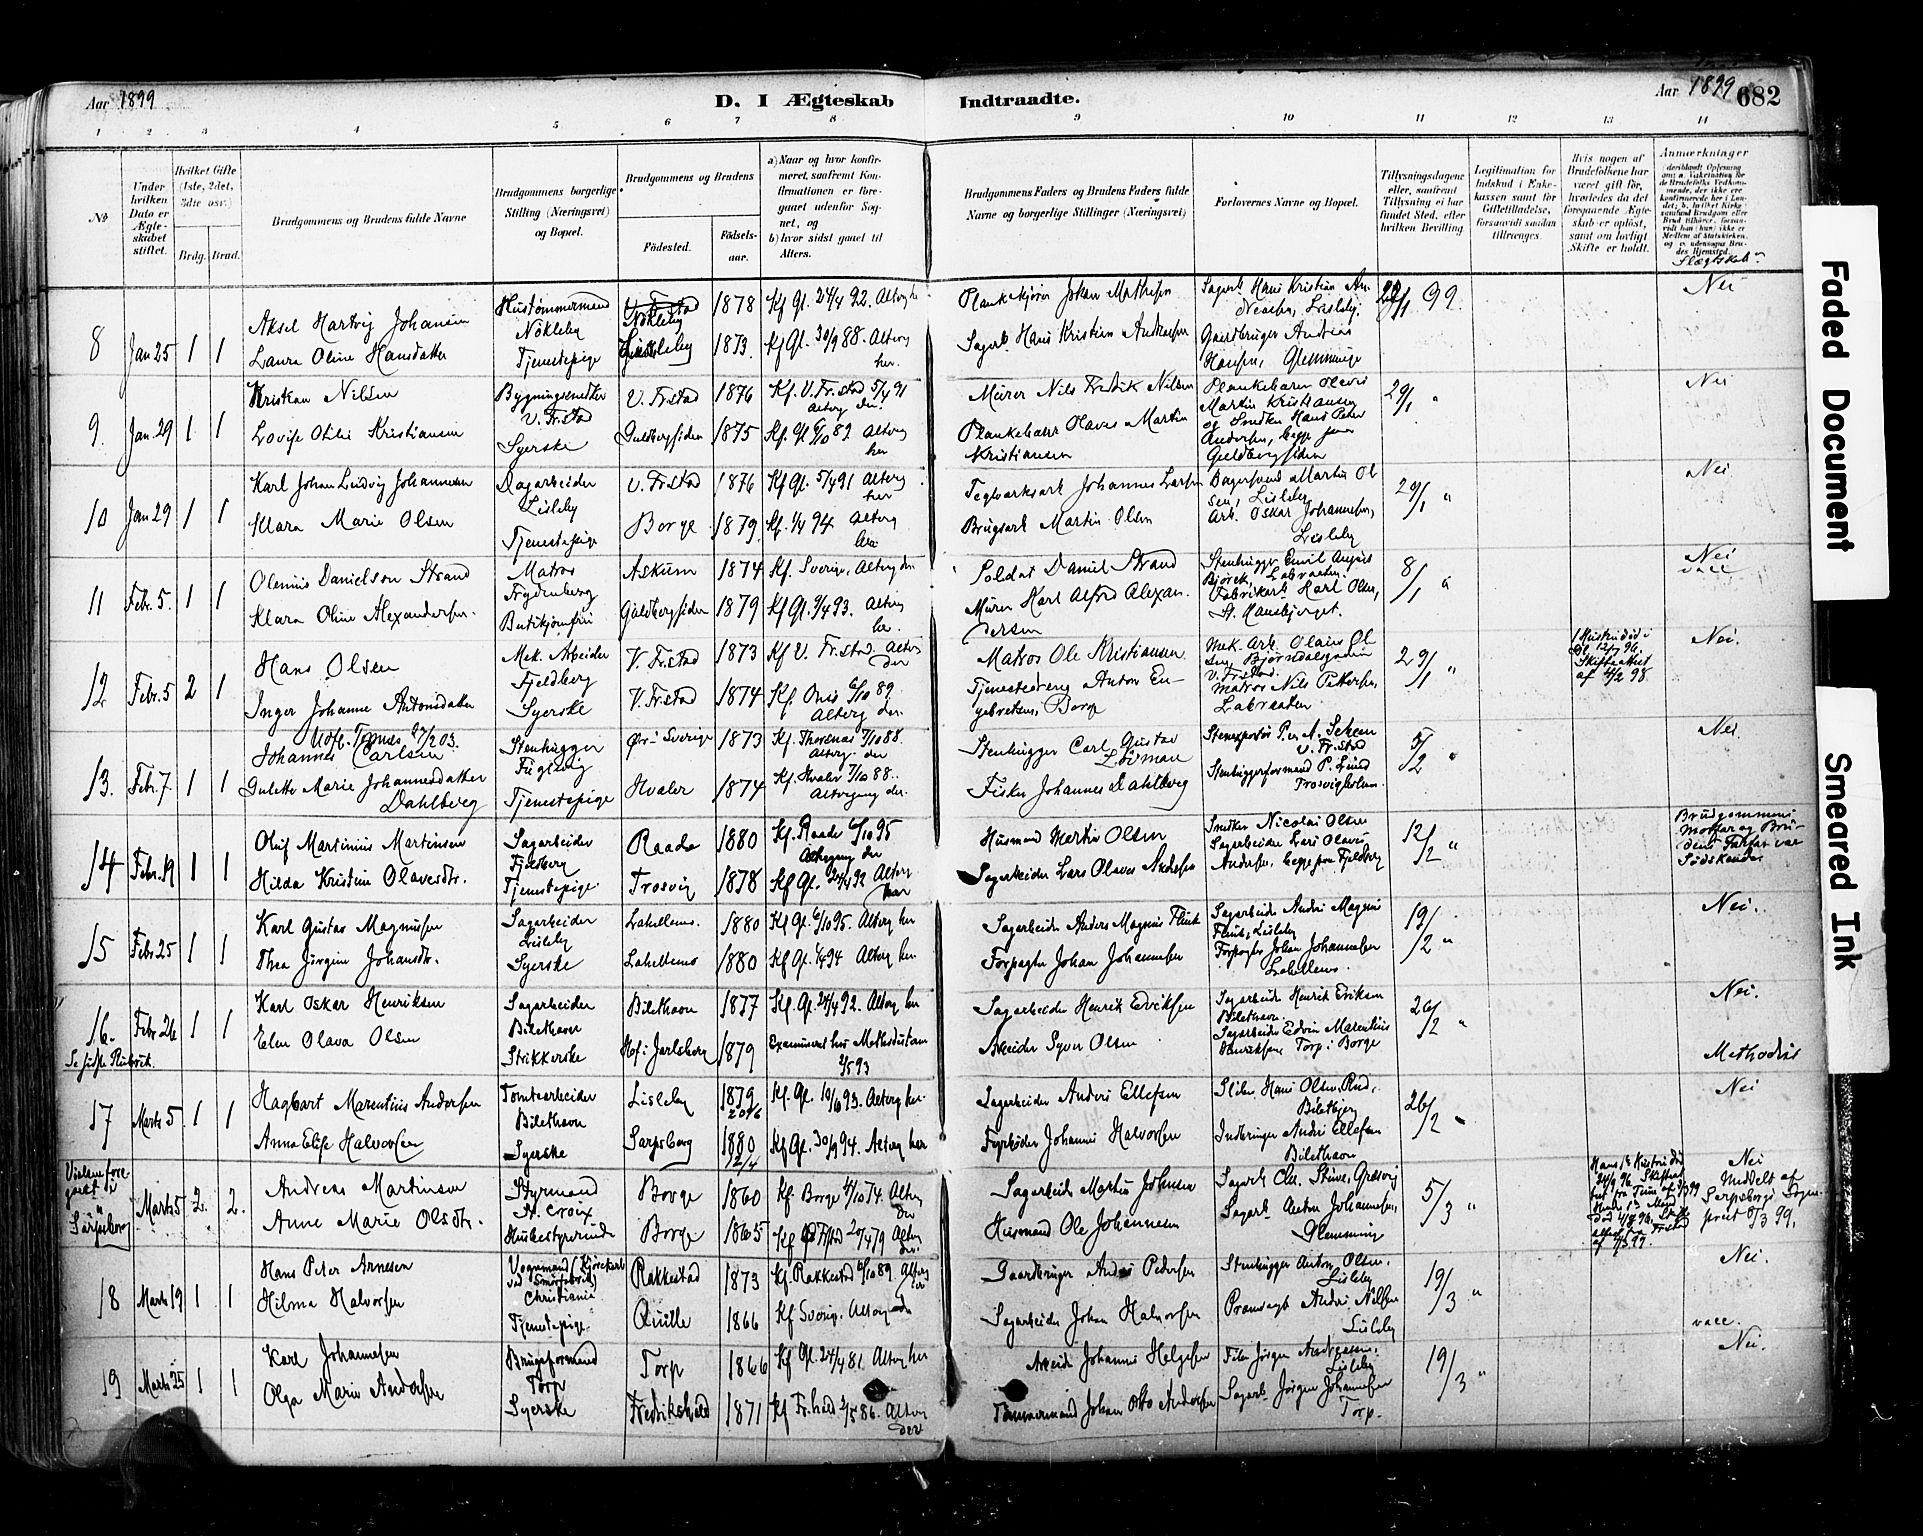 Aar 1899
D. I Ægteskab
Indtraadte.
Aar 1899 682
1 2 3 4 5 6 7 8 9 10 11 12 13 14
No
Under hvilken Dato er Ægteskabet stiftet.
Hvilket Gifte (1ste, 2det, 3die osv.)
Brdg. Brud.
Brudgommens og Brudens fulde Navne
Brudgommens borgerlige Stilling (Næringsvei) og Bopæl.
Brudgommens og Brudens
Födested.
Födselsaar.
a) Naar og hvor konfirmeret, samt om Konfirmationen er foregaaet udenfor Sognet, og
b) hvor sidst gaaet til Alters.
Brudgommens Faders og Brudens Faders fulde Navne og borgerlige Stillinger (Næringsvei)
Forlovernes Navne og Bopæl.
Tillysningsdagene eller, saafremt Tillysning ei har fundet Sted, efter hvilken Bevilling.
Legitimation for Indskud i Enkekassen samt for Giftetilladelse, forsaavidt saadan tiltrænges.
Hvis nogen af Brudefolkene har været gift før, hvorledes da det foregaaende Ægteskab er opløst, samt om lovligt Skifte er holdt.
Anmærkninger
Slægtskab
8 Jan 25 1 1
Aksel Hartvig Johansen
Laura Oline Hansdatter
Hustømmermand
Nökleby
Tjenestepige
Nökleby 1878
Lisleby 1873
Kf Gl. 24/4 92. Alterg her
Kf Gl. 30/9 88. Alterg her.
Plankekjører Johan Mathisen
Sagarb. Hans Kristian Andreasen
Sagarb Hans Kristian Andreasen, Lisleby.
Gaardbruger Andreas Hansen, Glemminge
/1 99.
Nei
9. Jan. 29 1 1
Kristian Nilsen
Lovise Otilie Kristiansen
Bygningssnedker
V. Fr.stad
Syerske
V. Fr.stad 1876
Guldbergsiden 1875
Kf. V. Fr.stad 5/4 91 Alterg der.
Kf. Gl 6/10 89 Alterg her
Murer Nils Fredrik Nilsen
Plankebærer Olaves Martin Kristiansen
Plankebærer Olaves Martin Kristiansen
og Snedker Hans Peter Andersen, begge paa Guldbergsiden
29/1 "
Nei
10 Jan 29 1 1
Karl Johan Ludvig Johannesen
Klara Marie Olsen
Dagarbeider
Lisleby
Tjenestepige
V. Fr.stad 1876
Borge 1879
Kf Gl. 5/4 91 Alterg her
Kf. 1/4 94 Alterg her
Teglværksarb Johannes Larsen
Brugsarb Martin Olsen
Bagersvend Martin Olsen, Lisleby
Arb. Oskar Johannesen, Lisleby
29/1 "
Nei
11 Febr. 5. 1 1
Olenius Danielson Strand
Klara Oline Alexandersen.
Matros
Frydenberg
Butikjomfru
Askum 1874
Guldbergsiden 1879
Kf. Sverige, Alterg der
Kf Gl. 9/4 93. Alterg her.
Soldat Daniel Strand
Murer Karl Alfred Alexandersen
Stenhugger Emil August Bjørck, Labraaten.
Fabrikarb Karl Olsen, St. Hansbjerget.
8/1 "
Nei
vacc
12 Febr. 5 2 1
Hans Olsen
Inger Johanne Antonsdatter
Mek. Arbeider
Fjeldberg
Syerske
V. Fr.stad 1873
V. Fr.stad 1874
Kf V. Fr.stad. Alterg der
Kf. Onsø 6/10 89. Alterg der.
Matros Ole Kristiansen
Tjenestedreng Anton Engebretsen, Borge
Mek. Arb. Olaus Olsen, Bjørndalsgaden V. Fr.stad.
Matros Nils Pettersen, Labraaten
29/1 "
1 Hustru död i
Skifteattest af 4/2 98.
Nei.
13. Febr. 7 1 1
Johannes Carlsen
Gulette Marie Johannesdatter Dahlberg
Stenhugger
Fuglevig
Tjenestepige
Sverige 1873
Hvaler 1874
Kf. Thorsnæs 7/10 88. Alterg. der
Kf. Hvaler 7/10 88. Altergang der.
Stenhugger Carl Gustav Löfman
Fisker Johannes Dahlberg
Stenexportör P. A. Schean V. Fr.stad
Stenhuggerformand P. Lund Trosvigholm.
5/2 "
Nei
14 Febr. 19 1 1
Oluf Martinius Martinsen
Hilda Kristine Olavesdtr.
Sagarbeider
Fjeldberg
Tjenestepige
Raade 1880
Trosvig 1878
Kf. Raade 6/10 95 Altergang der
Kf Gl. 24/4 92 Alterg her
Husmand Martin Olsen
Sagarbeider Lars Olaves Andersen
Snedker Nicolai Olsen
Sagarbeider Lars Olaves Andersen, begge paa Fjeldberg
12/2 "
Brudgommens Morfar og Brudens Farfar var Södskende
15 Febr 25 1 1
Karl Gustav Magnussen
Thea Jörgine Johansdtr.
Sagarbeider
Lisleby
Syerske
Lahellemo. 1880
Lahellemo 1880
Kf Gl. 6/10 95. Alterg her
Kf Gl. 1/4 94 Alterg her.
Sagarbeider Anders Magnus Flink
Forpagter Johan Johannesen
Sagarbeider Anders Magnus Flink, Lisleby
Forpagter Johan Johannesen Lahellemo.
19/2 "
Nei.
16. Febr. 26 1 1
Karl Oskar Henriksen
Elen Olava Olsen
Sagarbeider
Biletkavn
Strikkerske
Biletkavn 1877
Hof i Jarlsberg 1879
Kf. Gl. 24/4 92. Alterg her
Examineret hos Methodisterne 2/5 93
Sagarbeider Henrik Eriksen
Arbeider Syver Olsen
Sagarbeider Henrik Eriksen Biletkavn.
Sagarbeider Edvin Marentius Henriksen Torp i Borge
26/2 "
Nei.
Methodist
17 Marts 5. 1 1
Hagbart Marentius Andersen
Anna Elise Halvorsen
Tomtearbeider
Biletkavn
Syerske
Lisleby 1879 20/6
Sarpsborg 1880 12/4
Kf. Gl. 10/6 93. Alterg her.
Kf Gl. 30/9 94. Alterg her
Sagarbeider Anders Ellefsen
Fyrbøder Johannes Halvorsen
Sliber Hans Olsen Rud,
Inderinger Anders Ellefsen Biletkavn
26/2 "
Nei
Vielsen foregaaet i Sarpsborg
Marts 5 2. 2.
Andreas Martinsen
Anne Marie Olsdtr.
Styrmand
St. Croix
Husbestyrerinde
Borge 1860
Borge 1865
Kf. Borge 4/10 74. Alterg der
Kf Fr.stad 20/4 79 Alterg der.
Sagarbeider Martin Johnsen
Husmand Ole Johannesen
Sagarb Chr. Stene, Gresvig
Sagarb. Anton Johannesen, Glemminge
5/3 "
Nei
Meddelt af Sarpsborgs Sognepræst 6/3 99.
18 Marts 19 1 1
Hans Peter Arnesen
Hilma Halvorsen
Vognmand (Kjörekarl ved Smörfabrik) Christiania
Tjenestepige
Rakkestad 1873
Quille 1866
Kf. Rakkestad 6/10 89 Alterg der
Kf Sverige. Alterg der
Gaardbruger Anders Pedersen
Sagarbeider Johan Halvorsen
Stenhugger Anton Olsen. Lisleby
Pramvagt Anders Nilsen Lisleby
19/3 "
Nei.
vacc.
19 Marts 25 1 1
Karl Johannesen
Olga Marie Andersen
Brugsformand
Torp
Syerske
Torp 1866
Fredrikshald 1871
Kf Gl. 24/4 81 Alterg her
Kf Fr.hald 2/5 86. Alterg der
Arbeider Johannes Helgesen
Tømmermand Johan Otto Andersen
Filer Jørgen Andreassen, Lisleby
Sagarb. Jörgen Johannesen Torp.
19/3 "
Nei.
Faded Document
Smeared Ink